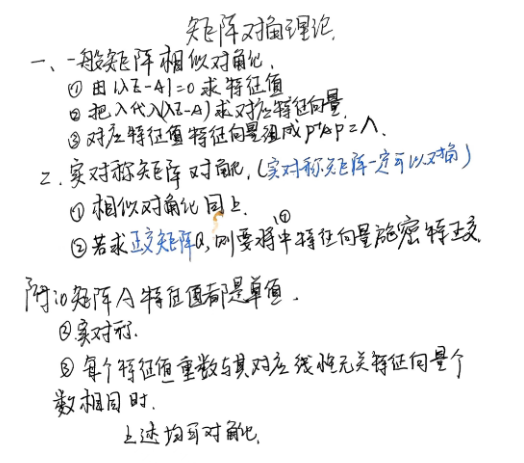 矩阵对角理论.
一、一般矩阵相似对角化.
① 由|λE-A|=0求特征值
② 把λ代入(λE-A)求对应特征向量.
③ 对应特征值特征向量组成P⁻¹AP=Λ.
2. 实对称矩阵对角化.(实对称矩阵一定可以对角)
① 相似对角化同上.
② 若求正交矩阵Q,则要将①中特征向量施密特正交.
附:① 矩阵A特征值都是单值.
② 实对称.
③ 每个特征值重数与其对应线性无关特征向量个
数相同时.
上述均可对角化.